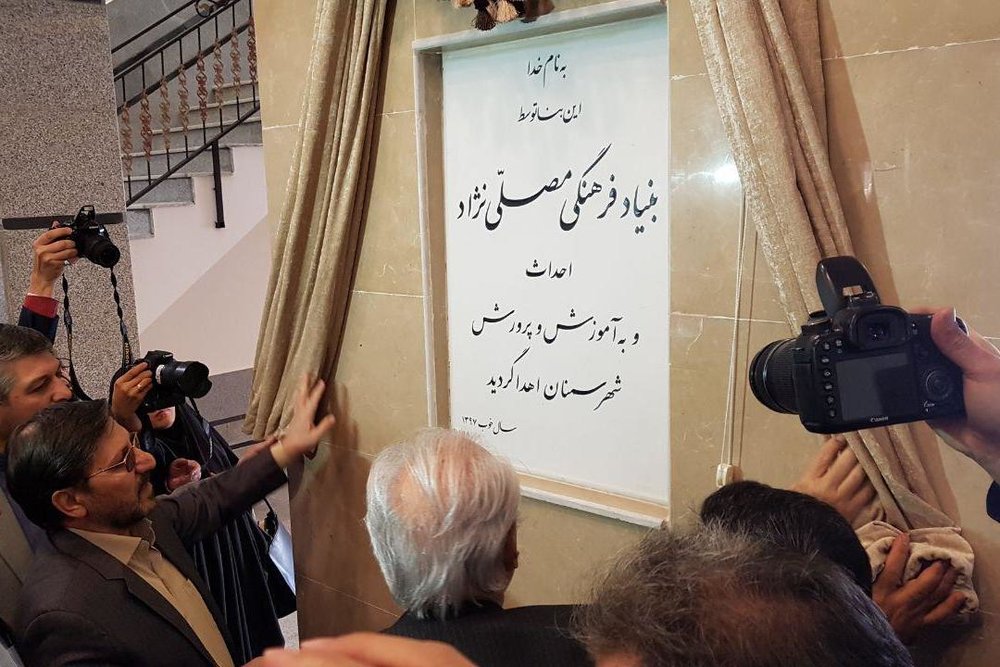 به نام خدا
این بنا توسط
بنیاد فرهنگی مصلّی نژاد
احداث
و به آموزش و پرورش
شهرستان اهدا گردید
سال خوب ۱۳۹۷
Canon